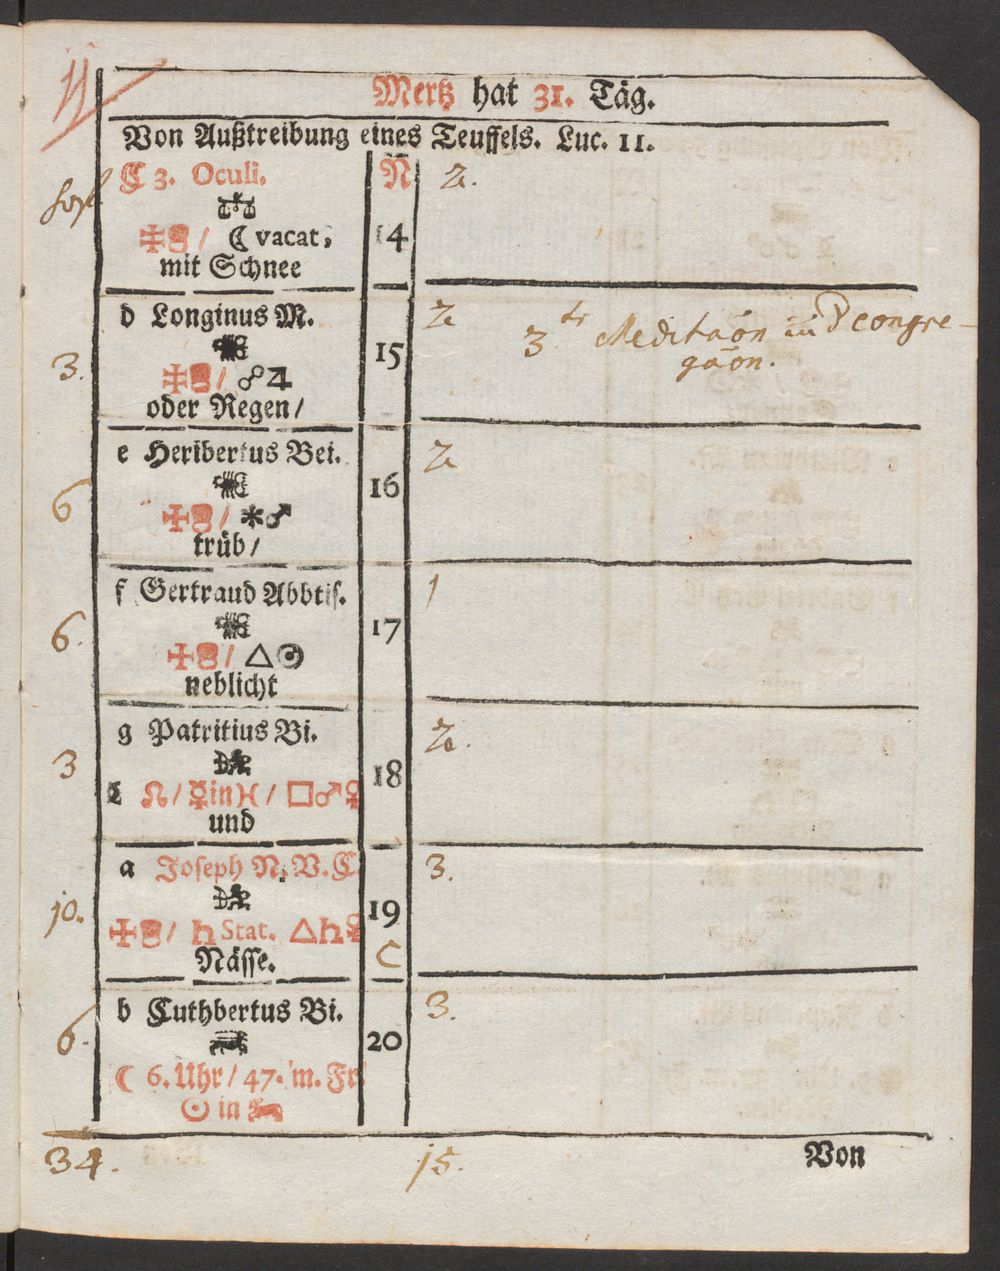 Mertz hat 31. Täg.
Von Außtreibung eines Teuffels. Luc. 11.
C 3. Oculi. N 2.
☾ vacat, 14
mit Schnee
d Longinus M. 2
15 3 Meditaōn in congre-
gāon.
3. ☍♃
oder Regen/
e Heribertus Bei. 2
6 / ✶♂ 16
trüb/
f Gertraud Abbtiſ. 1
6. / △☉ 17
neblicht
g Patritius Bi. 2.
3 18
☊/☿in♓/□♂♀
und
a Joſeph N. V. C. 3.
10. / ♄ Stat. △♄♀ 19
Näſſe. C
b Cuthbertus Bi. 3.
6. 20
☾ 6. Uhr/ 47. m. Fr
☉ in
34. 15. Von